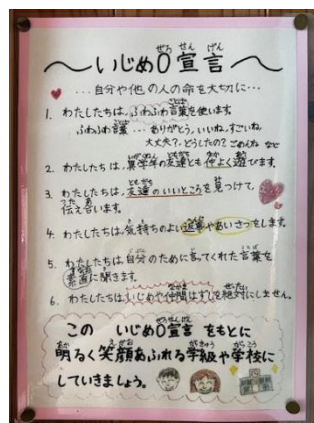 〜いじめ0宣言〜
…自分や他の人の命を大切に…
1. わたしたちは、ふわふわ言葉を使います。
ふわふわ言葉…ありがとう。いいね。すごいね。
大丈夫?どうしたの?ごめんね など
2. わたしたちは、異学年の友達とも仲よく遊びます。
3. わたしたちは、友達のいいところを見つけて、
伝え合います。
4. わたしたちは、気持ちのよい返事やあいさつをします。
5. わたしたちは、自分のために言ってくれた言葉を
素直に聞きます。
6. わたしたちは、いじめや仲間はずしを絶対にしません。
この いじめ0宣言 をもとに
明るく笑顔あふれる学級や学校に
していきましょう。